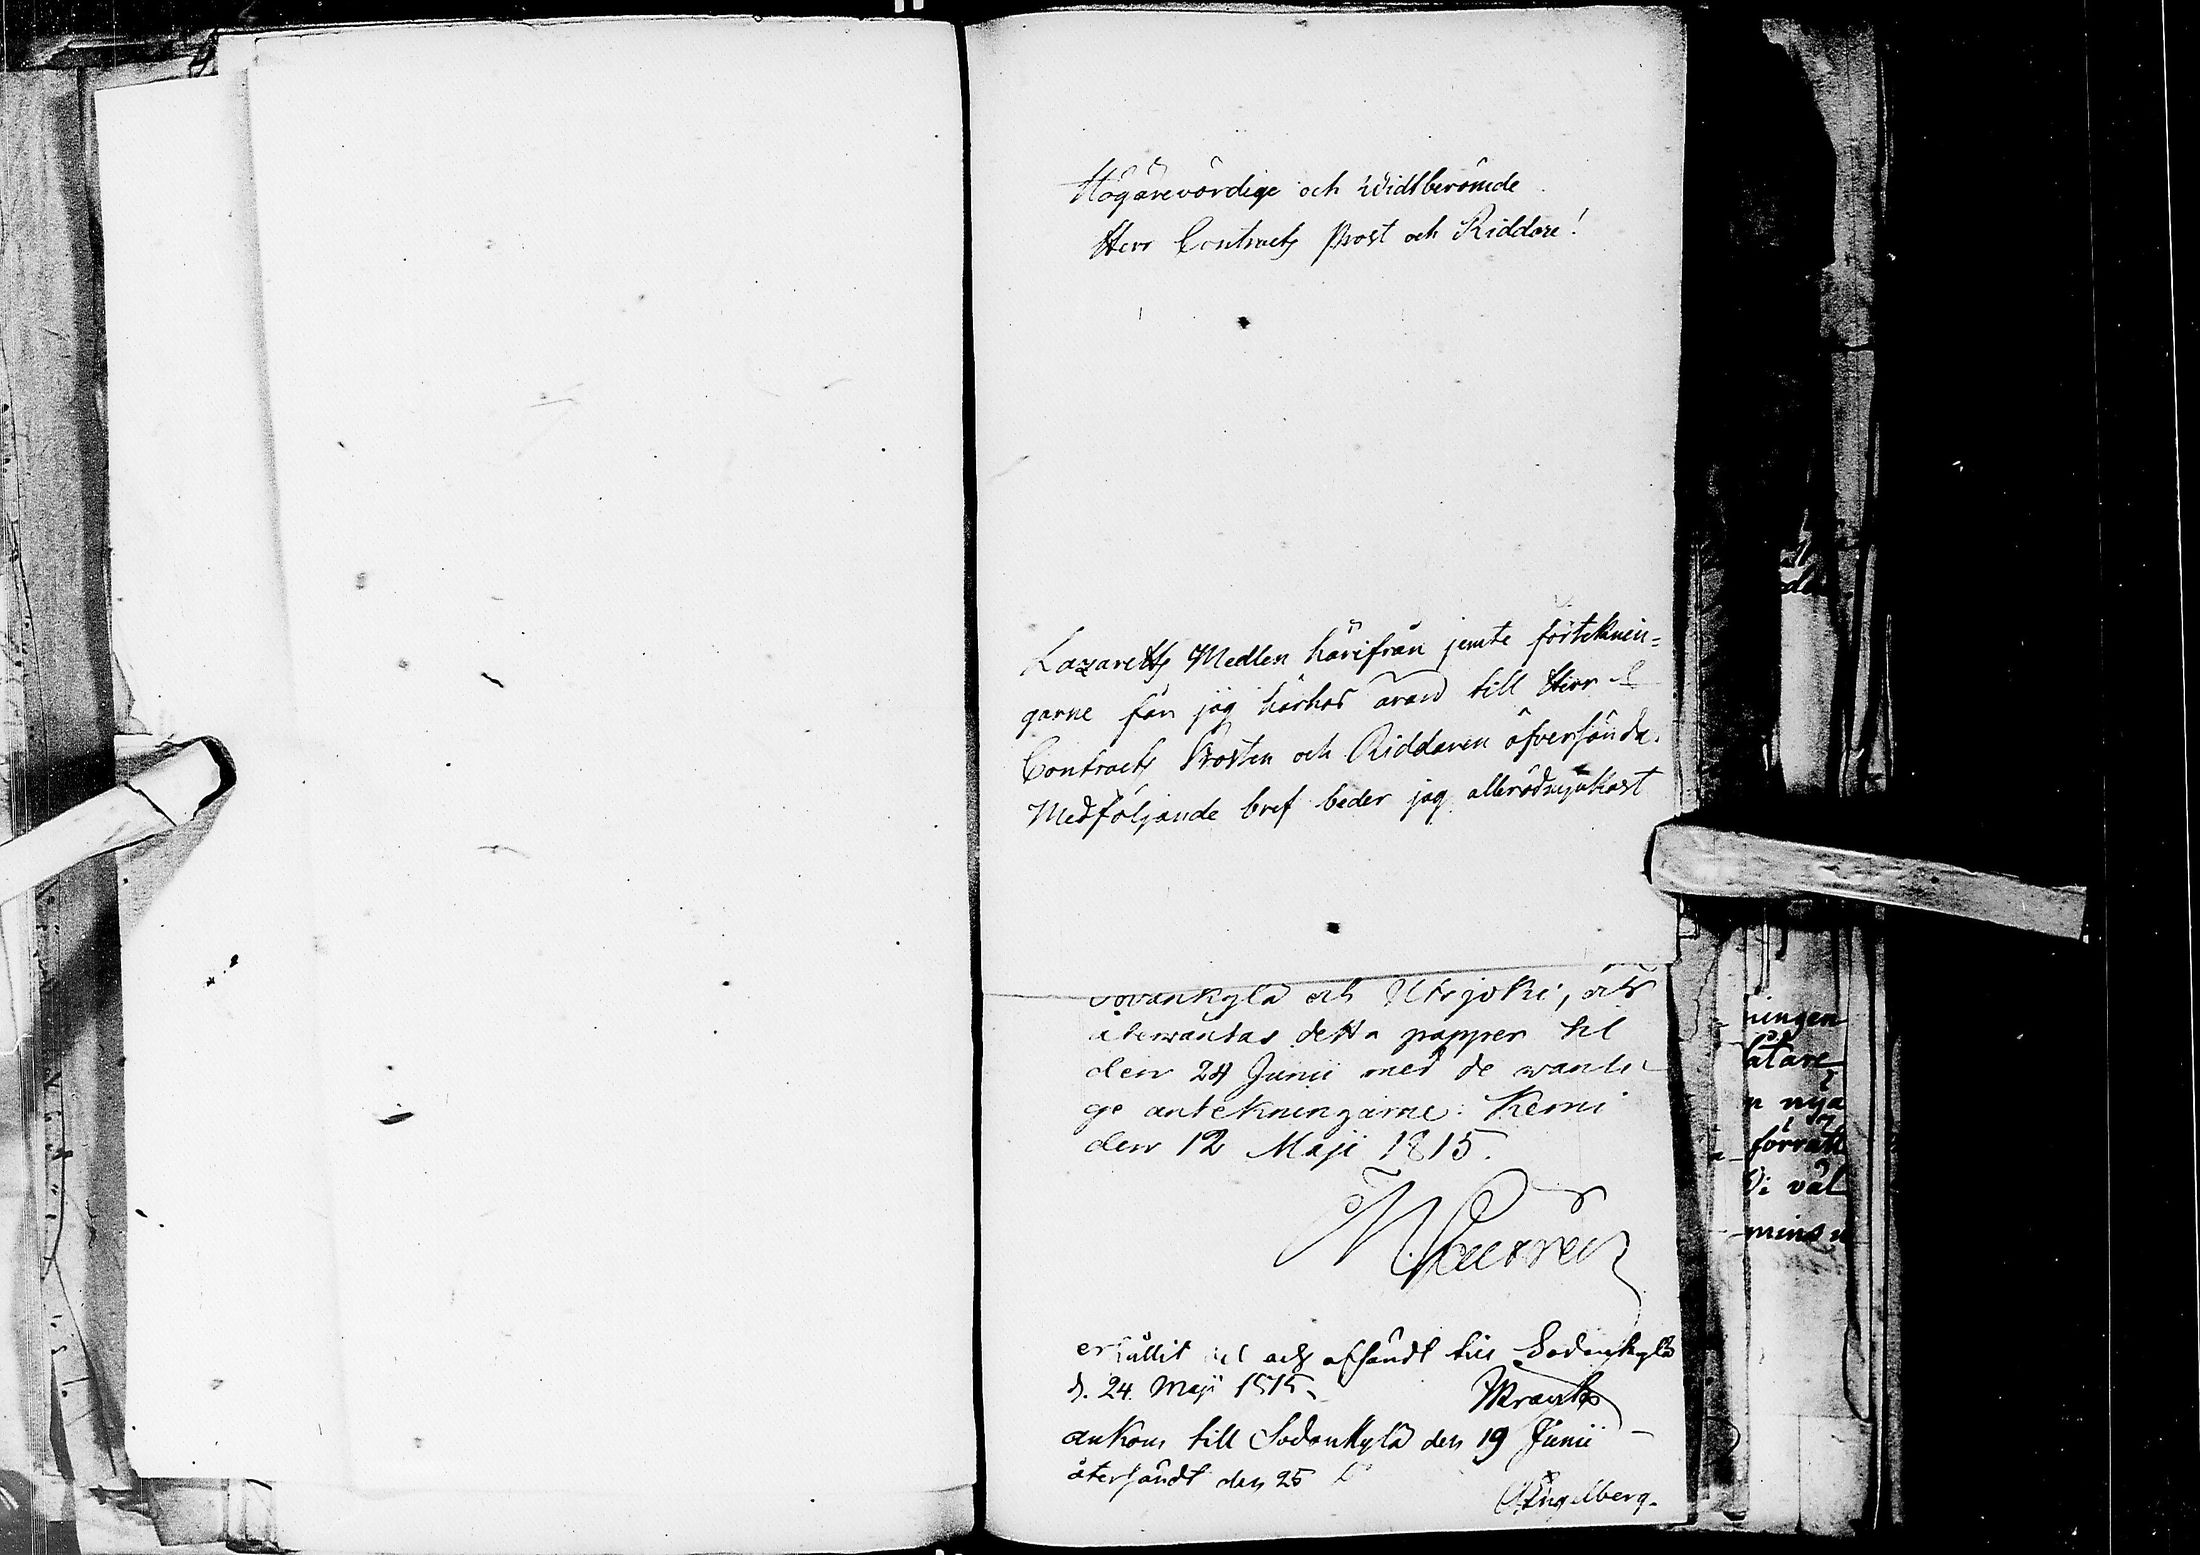 Högärevördige och Widtberömde
Herr Contracts Prost och Riddare!
Lazaretts Medlen härifrån jemte förteknin=
garne får jag härhos äran till Herr
Contracts Prosten och Riddaren öfversända.
Medföljande bref beder jag allerödmjukast
Sodankylä och Utsjoki, och
återwäntas detta papper til
den 24 Junii med de wanli-
ge antekningarne. Kemi
den 12 Maji 1815.
erhållit och afsändt till Sodankylä
d. 24. Maji 1815.
ankom till Sodankylä den 19 Junii
återsändt den 25
Engelberg.
ningen
låtare
n nya
förrätt
Di väl